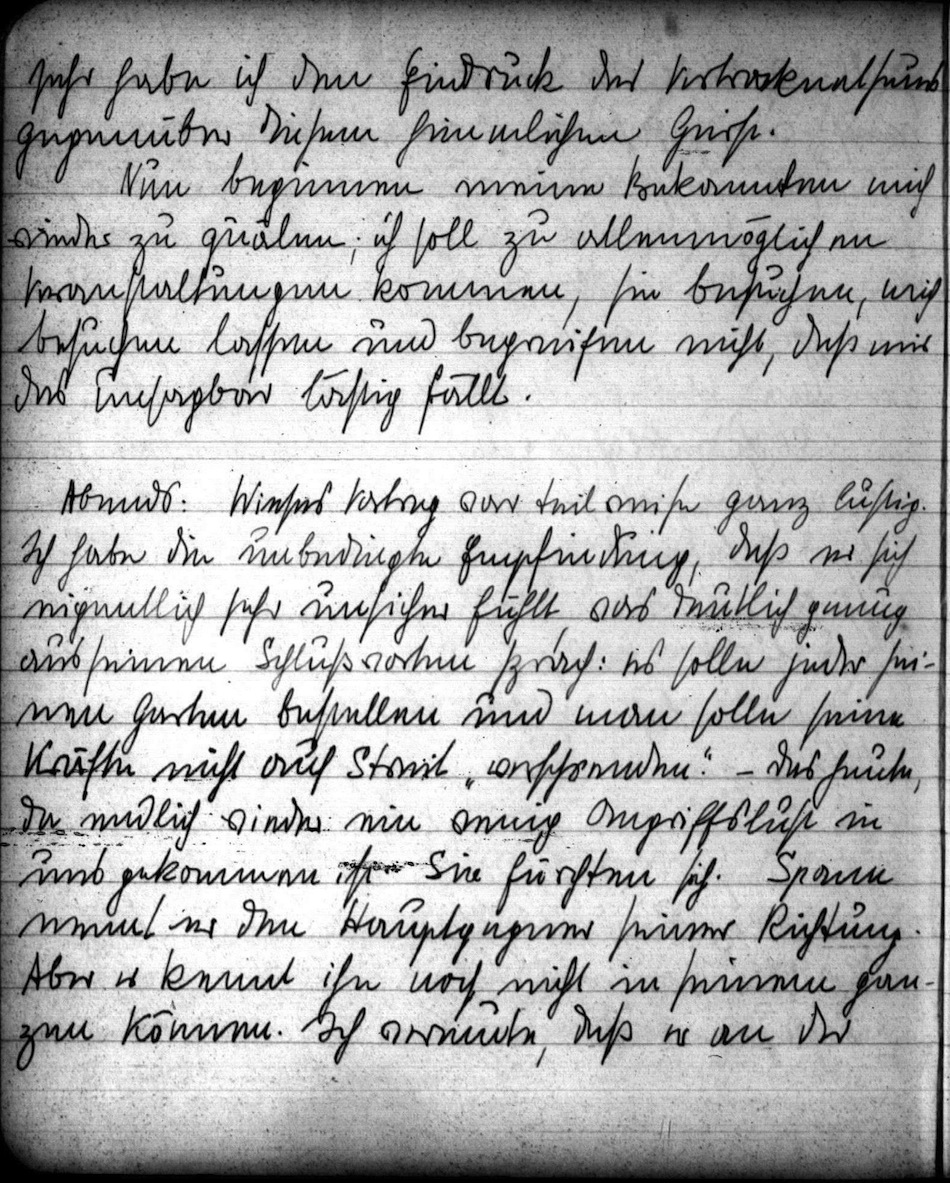 sehr habe ich den Eindruck des Vertrocknetseins
gegenüber diesem himmlischen Geiste.
Nun beginnen meine Bekannten mich
wieder zu quälen; ich soll zu allenmöglichen
Veranstaltungen kommen, sie besuchen, mich
besuchen lassen und begreifen nicht, daß mir
das unsagbar lästig fällt.
Abends: Vortrag war teilweise ganz lustig.
Ich habe die unbedingte Empfindung, daß er sich
eigentlich sehr unsicher fühlt, was deutlich genug
aus seinen Schlußworten sprach: es solle jeder sei-
nen Garten bestellen und man solle seine
Kräfte nicht auf Streit „verschwenden". – Das heute,
da endlich wieder ein wenig Angriffslust in
uns gekommen ist – Sie fürchten sich. Spann
nennt er den Hauptgegner seiner Richtung.
Aber er kennt ihn noch nicht in seinem gan-
zen Können. Ich vermute, daß er an der